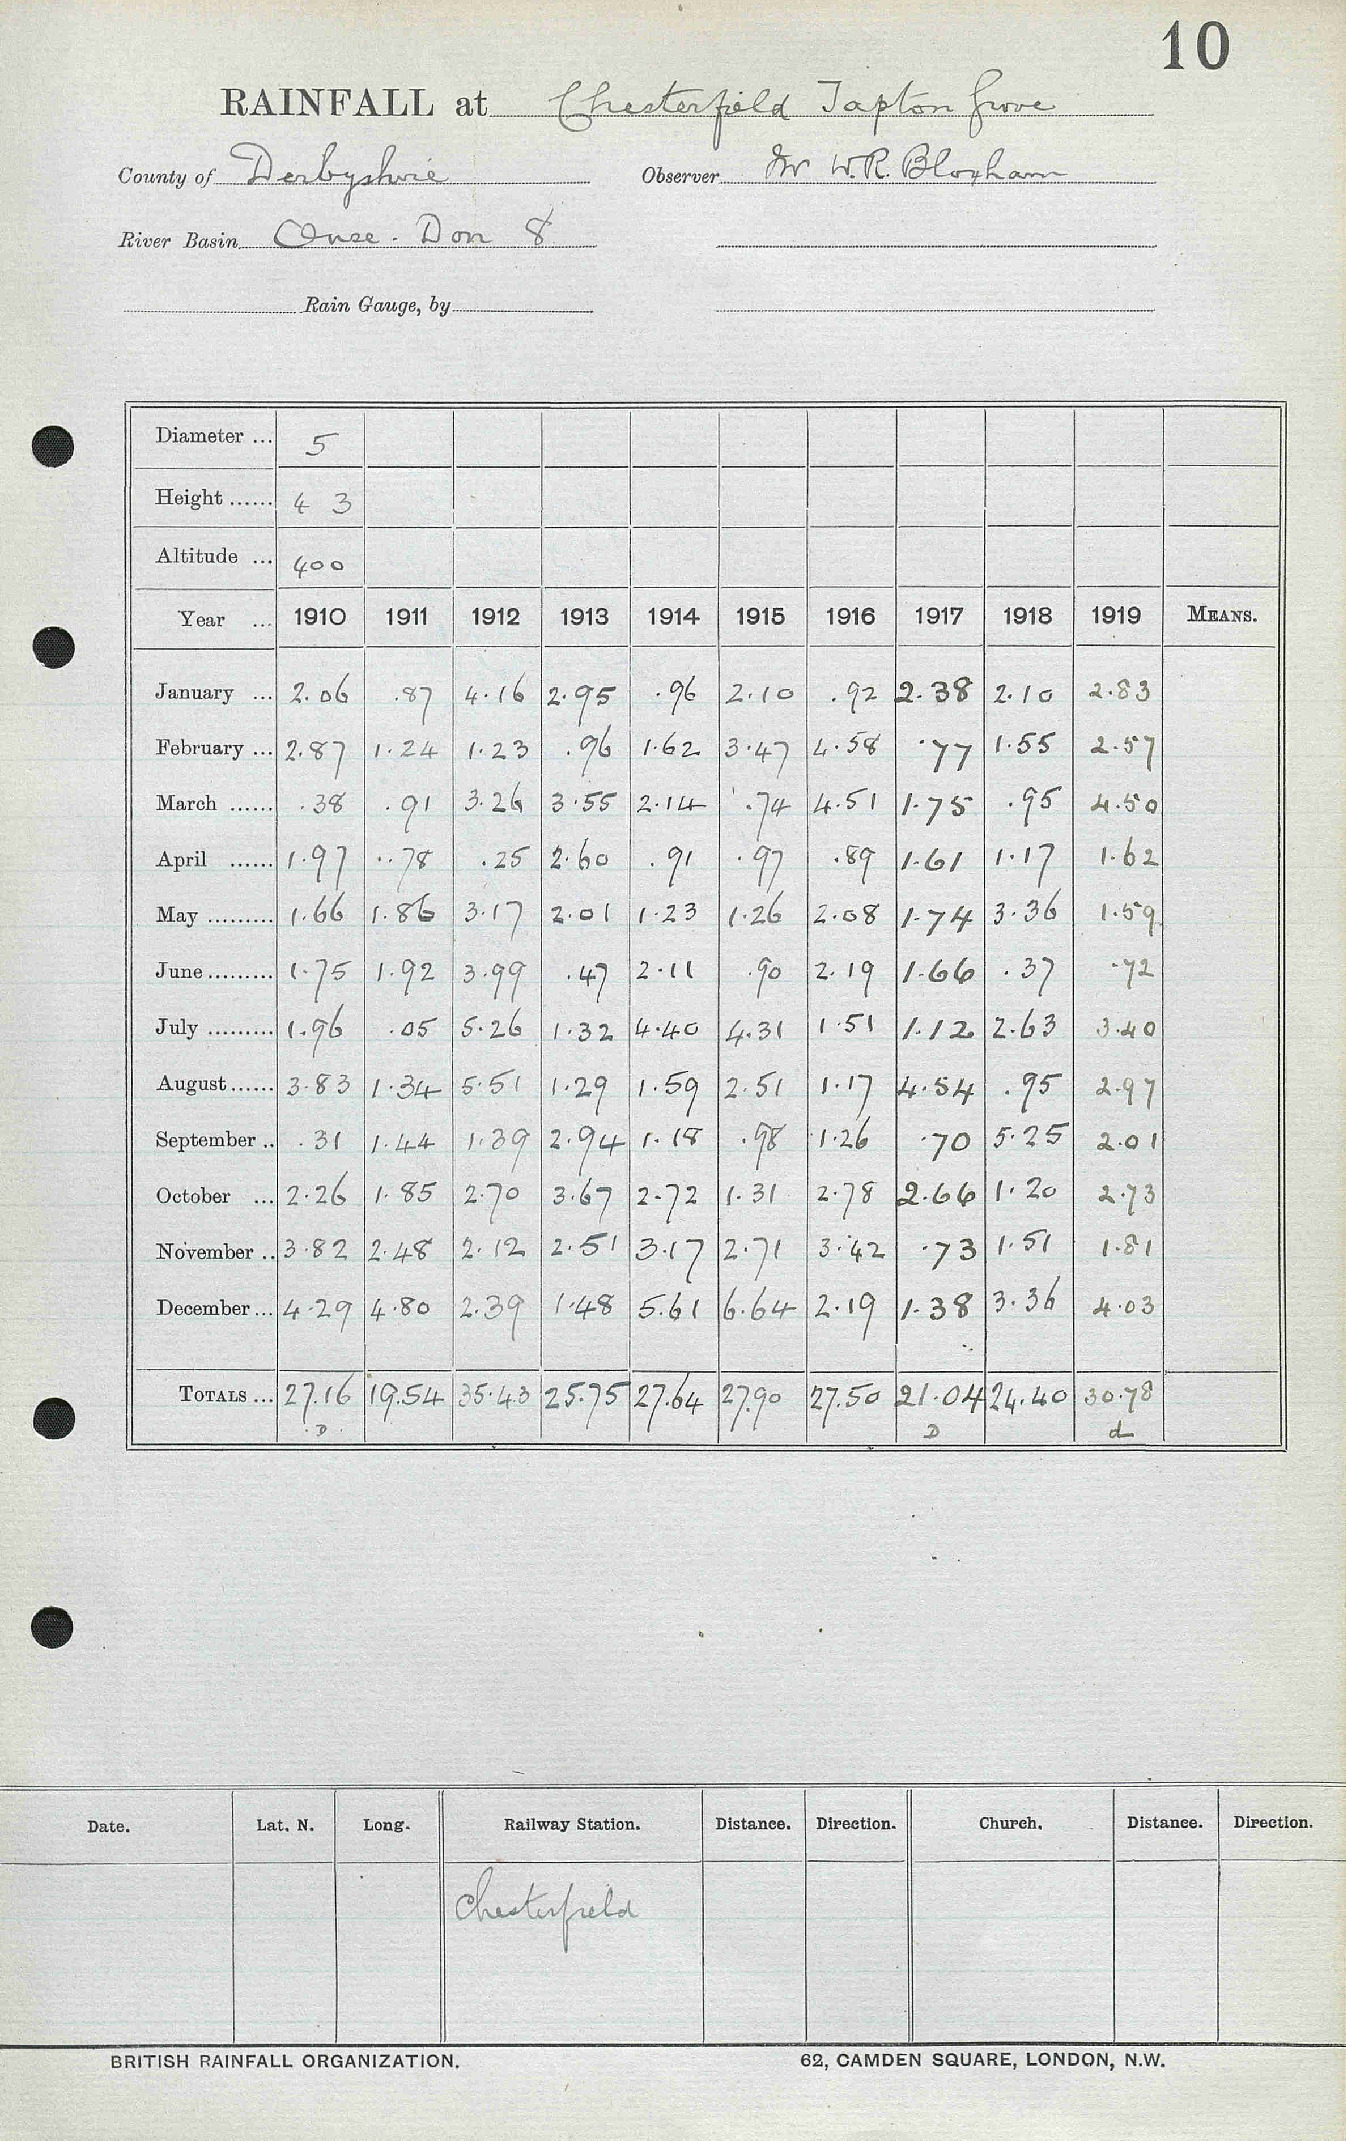 10
RAINFALL at Chesterfield Tapton Grove
County of Derbyshire Observer Mr W.R. Bloxham
River Basin Ouse - Don 8
Rain Gauge, by
Diameter ... 5
Height ...... 4 3
Altitude ... 400
Year ... 1910 1911 1912 1913 1914 1915 1916 1917 1918 1919 MEANS.
January ... 2.06 .87 4.16 2.95 .96 2.10 .92 2.38 2.10 2.83
February ... 2.87 1.24 1.23 .96 1.62 3.47 4.58 .77 1.55 2.57
March ...... .38 .91 3.26 3.55 2.14 .74 4.51 1.75 .95 4.50
April ...... 1.97 .78 .25 2.60 .91 .97 .89 1.61 1.17 1.62
May ......... 1.66 1.86 3.17 2.01 1.23 1.26 2.08 1.74 3.36 1.59
June ......... 1.75 1.92 3.99 .47 2.11 .90 2.19 1.66 .37 .72
July ......... 1.96 .05 5.26 1.32 4.40 4.31 1.51 1.12 2.63 3.40
August ...... 3.83 1.34 5.51 1.29 1.59 2.51 1.17 4.54 .95 2.97
September .. .31 1.44 1.39 2.94 1.18 .98 1.26 .70 5.25 2.01
October ... 2.26 1.85 2.70 3.67 2.72 1.31 2.78 2.66 1.20 2.73
November .. 3.82 2.48 2.12 2.51 3.17 2.71 3.42 .73 1.51 1.81
December ... 4.29 4.80 2.39 1.48 5.61 6.64 2.19 1.38 3.36 4.03
TOTALS ... 27.16 19.54 35.43 25.75 27.64 27.90 27.50 21.04 24.40 30.78
D D d
Date. Lat. N. Long. Railway Station. Distance. Direction. Church. Distance. Direction.
Chesterfield
BRITISH RAINFALL ORGANIZATION. 62, CAMDEN SQUARE, LONDON, N.W.